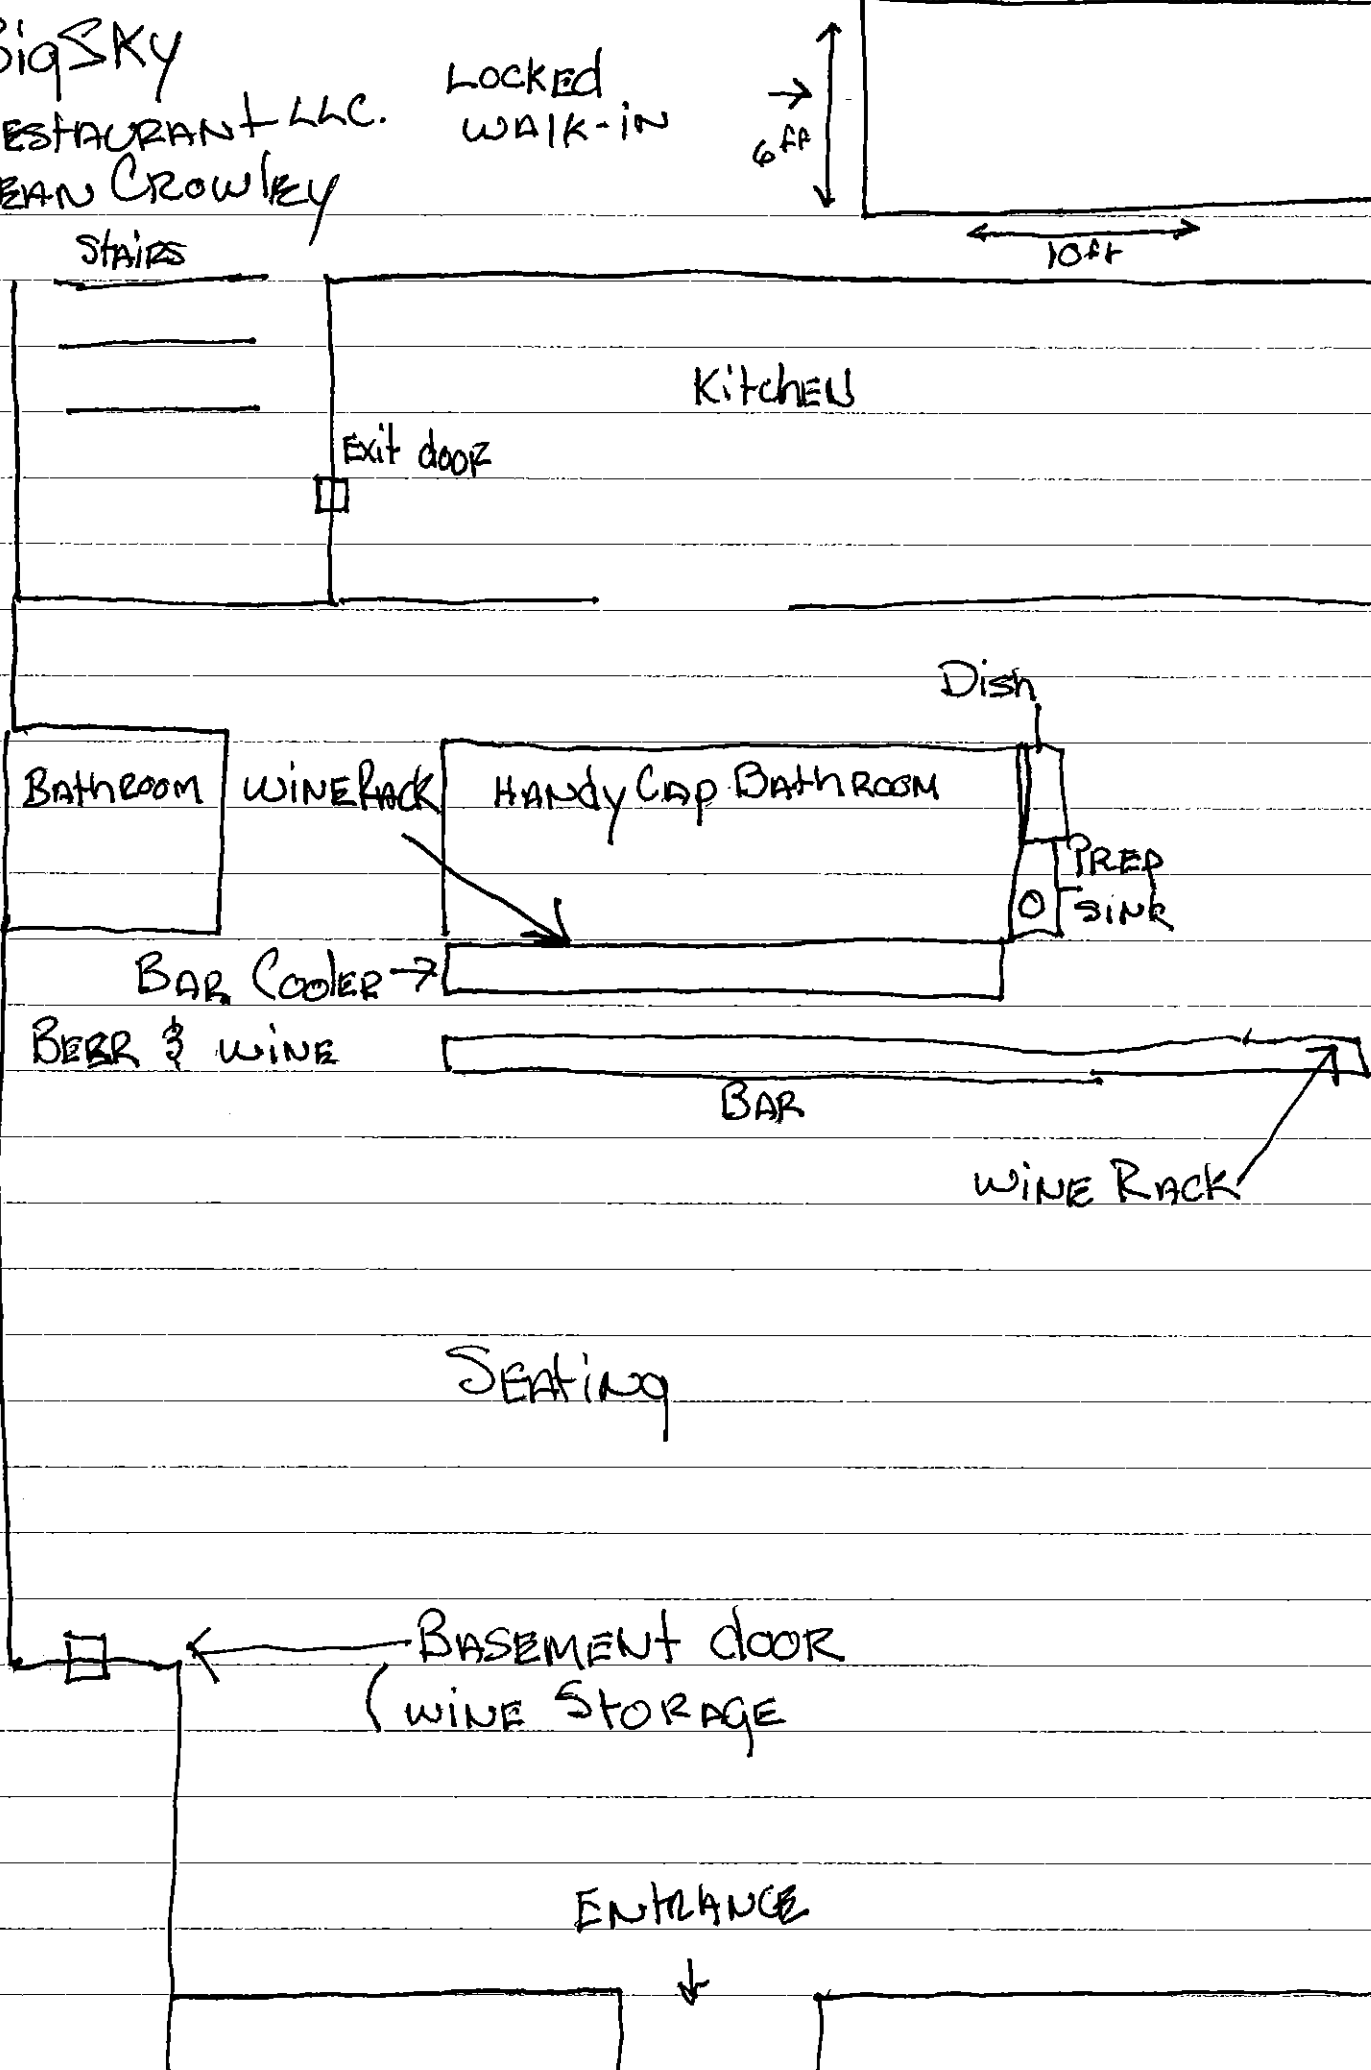 BigSky
ESTAURANT LLC.
EAN CROWLEY
LOCKED
WALK-IN
6 ft
10 ft
STAIRS
KitchEN
Exit dOOR
Dish
BAthROOM
WINE RACK
HANdy CAp BAthROOM
PREP
SINK
BAR COOlER
BEER & WINE
BAR
WINE RACK
SEAtiNg
BASEMENt dOOR
(WINE StORAGE
ENtRANCE